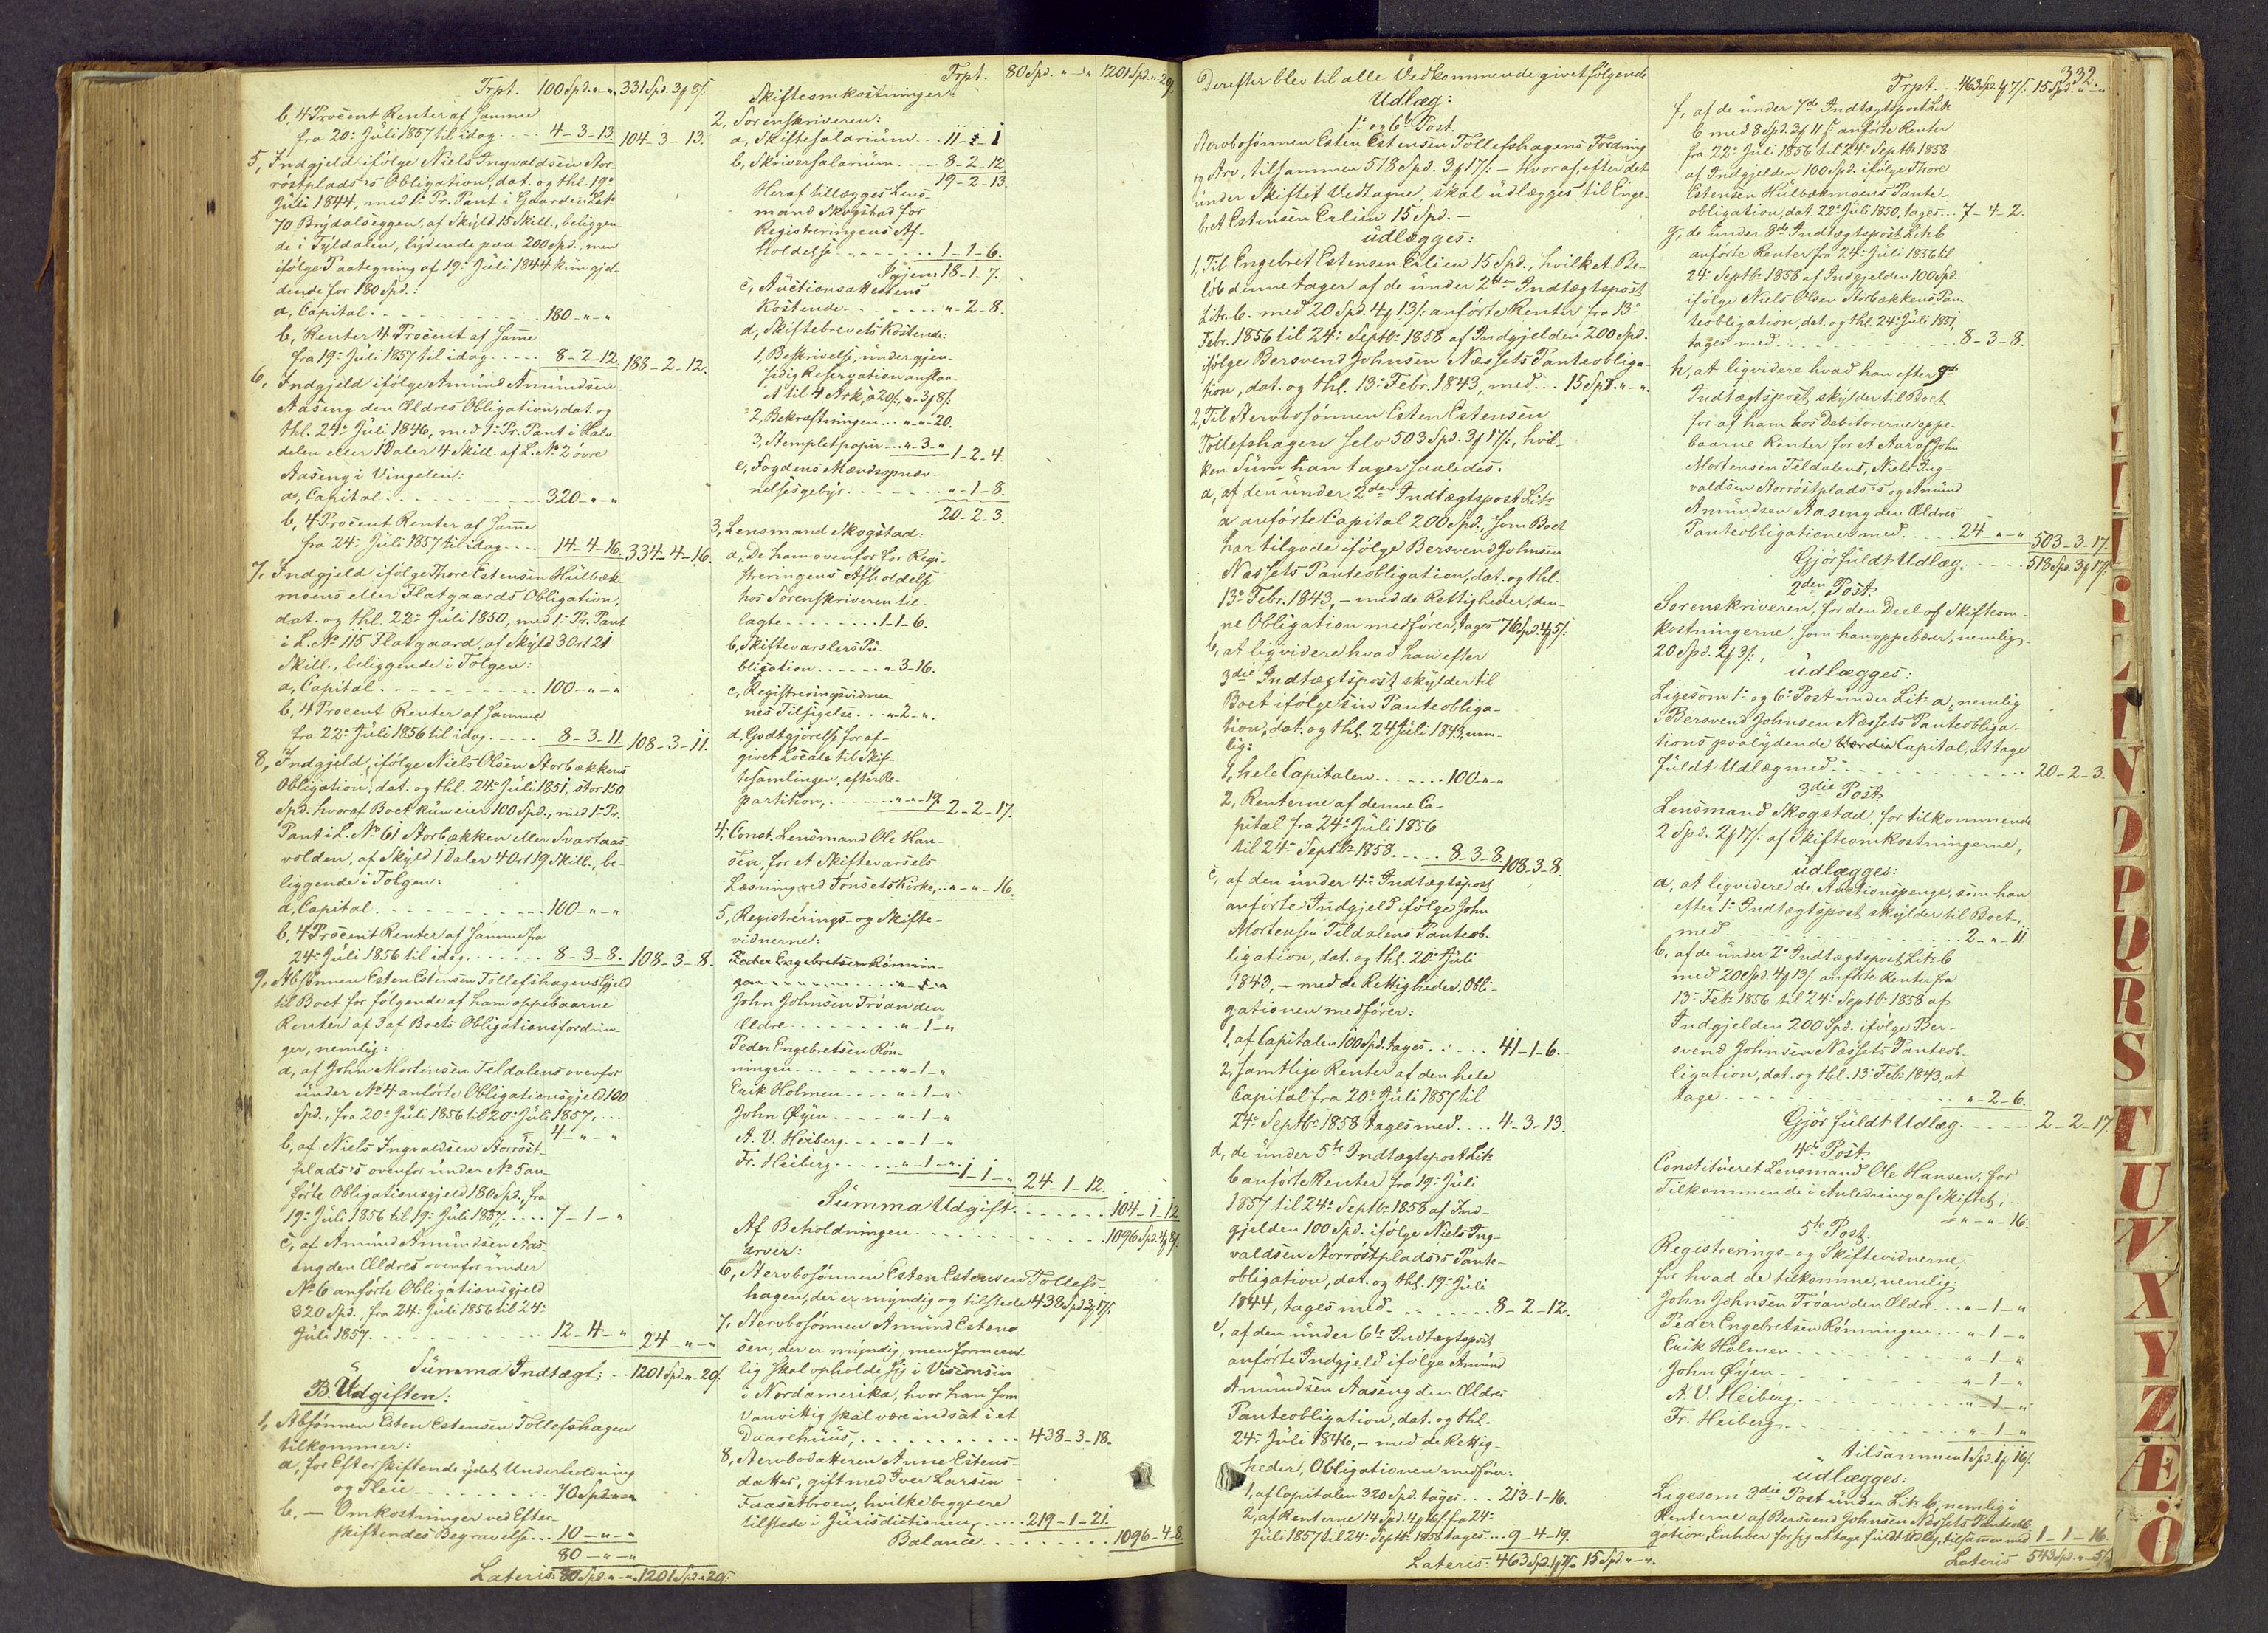 Trpt. 100 Spd. „ - „ 331 Spd. 3 ß 8 ß.
b, 4 Procent Renter af samme
fra 20de Juli 1857 til idag .... 4 - 3 - 13. 104 - 3 - 13.
5, Indgjeld ifölge Niels Ingvaldsen Stor-
röstplads's Obligation, dat. og thl. 19de
Juli 1844, med 1ste Pr. Pant i Gaarden
70 Brydalseggen, af Skyld 15 Skill., beliggen-
de i Tyldalen, lydende paa 200 Spd., men
ifölge Paategning af 19de Juli 1844 kun gjel-
dende for 180 Spd.:
a, Capital .... 180 - „ - „
b, Renter 4 Procent af samme
fra 19de Juli 1857 til idag .... 8 - 2 - 12. 188 - 2 - 12.
6, Indgjeld ifölge Amund Amundsen
Aaseng den Ældres Obligation, dat. og
thl. 24de Juli 1846, med 1ste Pr. Pant i Halv-
delen eller 1 Daler 4 Skill. af L. No 2 övre
Aaseng i Vingelen:
a, Capital .... 320 - „ - „
b, 4 Procent Renter af samme
fra 24de Juli 1857 til idag .... 14 - 4 - 16. 334 - 4 - 16.
7, Indgjeld ifölge Thore Estensen Hulbæk-
moens eller Flatgaards Obligation,
dat. og thl. 22de Juli 1850, med 1ste Pr. Pant
i L. No 115 Flatgaard, af Skyld 3 Ort 21
Skill., beliggende i Tolgen:
a, Capital .... 100 - „ - „
b, 4 Procent Renter af samme
fra 22de Juli 1856 til idag .... 8 - 3 - 11. 108 - 3 - 11.
8, Indgjeld, ifölge Niels Olsen Storbækkens
Obligation, dat. og thl. 24de Juli 1851, stor 150
Spd. hvoraf Boet kun eier 100 Spd., med 1ste Pr.
Pant i L. No 61 Storbækken eller Svartaas-
volden, af Skyld 1 Daler 4 Ort 19 Skill., be-
liggende i Tolgen:
a, Capital .... 100 - „ - „
b, 4 Procent Renter af samme fra
24de Juli 1856 til idag .... 8 - 3 - 8. 108 - 3 - 8.
9, Afsönnen Esten Estensen Tollefshagens Gjeld
til Boet for følgende af ham oppebaarne
Renter af 3 af Boets Obligationsfordrin-
ger, nemlig:
a, af John Mortensen Teldalens ovenfor
under No 4 anförte Obligationsgjeld 100
Spd., fra 20de Juli 1856 til 20de Juli 1857, ...
4 - „ - „
b, af Niels Ingvaldsen Storröst-
plads's ovenfor under No 5 an-
förte Obligationsgjeld 180 Spd., fra
19de Juli 1856 til 19de Juli 1857, .... 7 - 1 - „
c, af Amund Amundsen Aas-
eng den Ældres ovenfor under
No 6 anförte Obligationsgjeld
320 Spd. fra 24de Juli 1856 til 24de
Juli 1857 .... 12 - 4 - „ 24 - „ - „
Summa Indtægt: .. 1201 Spd. „ 20 ß.
B. Udgiften:
1, Afsönnen Esten Estensen Tollefshagen
tilkommer:
a, for Efterskiftende ydet Underholdning
og Pleie .... 70 Spd. „ - „
b, - Omkostninger ved Efter-
skiftendes Begravelse .. 10 - „ - „
80 - „ - „
Lateris: 80 Spd. „ - „ 1201 Spd. „ 20 ß.
Trpt. 80 Spd. „ - „ 1201 Spd. „ 20 ß
Skifteomkostninger:
2, Sorenskriveren:
a, Skiftesalarium ... 11 - „ - 1
b, Skriversalarium .... 8 - 2 - 12.
19 - 2 - 13.
Heraf tillægges Lens-
mand Skogstad for
Registreringens Af-
holdelse .... 1 - 1 - 6.
Igjen: 18 - 1 - 7.
c, Auctionsattestens
Kostende .... „ - 2 - 8.
d, Skiftebrevets Kostende:
1, Beskrivelse, under gjen-
sidig Reservation anslaa-
et til 4 Ark, à 20 ß, „ - 3 ß 8 ß.
2, Bekræftningen ... „ - „ - 20.
3, Stemplet papir ... „ - 3 - „ 1 - 2 - 4.
e, Fogdens Mandsopnæv-
nelsesgebyr .... „ - 1 - 8.
20 - 2 - 3.
3, Lensmand Skogstad:
a, De ham ovenfor for Regi-
streringens Afholdelse
hos Sorenskriveren til-
lagte .... 1 - 1 - 6.
b, Skiftevarslers Pu-
blication .... „ 3 - 16.
c, Registreringsvidner-
nes Tilsigelse ... „ - 2 - „.
d, Godtgjörelse for af-
givet Locale til Skif-
tesamlingen, efter Re-
partition, .... „ - „ - 19. 2 - 2 - 17.
4, Const. Lensmand Ole Han-
sen, for et Skiftevarsels
Læsning ved Tönsets Kirke, .. „ - „ - 16.
5, Registrerings- og Skifte-
vidnerne:
Peder Engebretsen Rönnin-
gen .... „ - 1 - „
John Johnsen Tröan den
Ældre .... „ - 1 - „
Peder Engebretsen Rön-
ningen .... „ - 1 - „
Erik Holmen .... „ - 1 - „
John Öyen .... „ - 1 - „
A. V. Heiberg .... „ - 1 - „
Fr. Heiberg .... „ - 1 - „ 1 - 1 - „ 24 - 1 - 12.
Summa Udgift .... 104 - 1 - 12
Af Beholdningen .... 1096 Spd. 4 ß 8 ß.
arver:
6, Stervbosönnen Esten Estensen Tollefs-
hagen, der er myndig og tilstede 438 Spd. 3 ß 17 ß.
7, Stervbosönnen Amund Esten-
sen, der er myndig, men formeent-
lig skal opholde sig i Visconsin
i Nordamerika, hvor han som
vanvittig skal være indsat i et
Daarehuus, .... 438 - 3 - 18.
8, Stervbodatteren Anne Estens-
datter, gift med Iver Larsen
Faasetbroen, hvilke begge ere
tilstede i Jurisdictionen, .... 219 - 1 - 21.
Balance .... 1096 - 4 - 8.
332.
Derefter blev til alle Vedkommende givet følgende
Udlæg:
1ste og 6te Post.
Stervbosönnen Esten Estensen Tollefshagens Fordring
og Arv, tilsammen 518 Spd. 3 ß 17 ß - hvoraf, efter det
under Skiftet Vedtagne, skal udlægges til Enge-
bret Estensen Erlien 15 Spd. -
udlægges:
1, Til Engebret Estensen Erlien 15 Spd., hvilket Be-
løb denne tager af de under 2den Indtægtspost
Litr. b. med 20 Spd. 4 ß 13 ß anförte Renter fra 13de
Febr. 1856 til 24de Septbr. 1858 af Indgjelden 200 Spd.
ifölge Bersvend Johnsen Næssets Panteobliga-
tion, dat. og thl. 13de Febr. 1843, med ... 15 Spd. „ - „
2, Til Stervbosönnen Esten Estensen
Tollefshagen selv 503 Spd. 3 ß 17 ß, hvil-
ken Sum han tager saaledes:
a, af den under 2den Indtægtspost Litr.
a anförte Capital 200 Spd., som Boet
har tilgode ifölge Bersvend Johnsen
Næssets Panteobligation, dat. og thl.
13de Febr. 1843, - med de Rettigheder, den-
ne Obligation medfører, tages 76 Spd. 4 ß 5 ß.
b, at liqvidere hvad han efter
3die Indtægtspost skylder til
Boet ifölge sin Panteobliga-
tion, dat. og thl. 24 Juli 1843, nem-
lig:
1, hele Capitalen .... 100 - „ - „
2, Renterne af denne Ca-
pital fra 24de Juli 1856
til 24de Septbr. 1858 .... 8 - 3 - 8. 108 - 3 - 8.
c, af den under 4de Indtægtspost
anförte Indgjeld ifölge John
Mortensen Teldalens Panteob-
ligation, dat. og thl. 20de Juli
1843, - med de Rettigheder, Obli-
gationen medfører:
1, af Capitalen 100 Spd. tages .... 41 - 1 - 6.
2, samtlige Renter af den hele
Capital fra 20de Juli 1857 til
24de Septbr. 1858 tages med ... 4 - 3 - 13.
d, de under 5te Indtægtspost Litr.
b anförte Renter fra 19de Juli
1857 til 24de Septbr. 1858 af Ind-
gjelden 100 Spd. ifölge Niels Ing-
valdsen Storröstplads's Pante-
obligation, dat. og thl. 19de Juli
1844, tages med .... 8 - 2 - 12.
e, af den under 6te Indtægtspost
anförte Indgjeld ifölge Amund
Amundsen Aaseng den Ældres
Panteobligation, dat. og thl.
24de Juli 1846, - med de Rettig-
heder, Obligationen medfører:
1, af Capitalen 320 Spd. tages ... 213 - 1 - 16.
2, af Renterne 14 Spd. 4 ß 16 ß fra 24de
Juli 1857 til 24de Septbr. 1858 tages ... 9 - 4 - 19.
Lateris: 463 Spd. 4 ß 7 ß 15 Spd. „ - „.
Trpt. .. 463 Spd. 4 ß 7 ß. 15 Spd. „ - „
f, af de under 7de Indtægtspost Litr.
b med 8 Spd. 3 ß 11 ß anförte Renter
fra 22de Juli 1856 til 24de Septbr. 1858
af Indgjelden 100 Spd. ifölge Thore
Estensen Hulbækmoens Pante-
obligation, dat. 22de Juli 1850, tages ... 7 - 4 - 2.
g, de under 8de Indtægtspost Litr. b
anförte Renter fra 24de Juli 1856 til
24de Septbr. 1858 af Indgjelden 100 Spd.
ifölge Niels Olsen Storbækkens Pan-
teobligation, dat. og thl. 24de Juli 1851,
tages med .... 8 - 3 - 8.
h, at liqvidere hvad han efter 9de
Indtægtspost skylder til Boet
for af ham hos Debitorerne oppe-
baarne Renter for et Aar af John
Mortensen Teldalens, Niels Ing-
valdsen Storröstplads's og Amund
Amundsen Aaseng den Ældres
Panteobligationer med .... 24 - „ - „ 503 - 3 - 17.
Gjör fuldt Udlæg .... 518 Spd. 3 ß 17 ß.
2den Post.
Sorenskriveren, for den Deel af Skifteom-
kostningerne, som han oppebær, nemlig
20 Spd. 2 ß 3 ß.,
udlægges:
Ligesom 1ste og 6te Post under Litr. a, nemlig
i Bersvend Johnsen Næssets Panteobliga-
tions paalydende Capital, at tage
fuldt Udlæg med .... 20 - 2 - 3.
3die Post.
Lensmand Skogstad, for tilkommende
2 Spd. 2 ß 17 ß. af Skifteomkostningerne,
udlægges:
a, at liqvidere de Auctionspenge, som han
efter 1ste Indtægtspost skylder til Boet,
med .... 2 - „ - 11
b, af de under 2den Indtægtspost Litr. b
med 20 Spd. 4 ß 13 ß. anförte Renter fra
13de Febr. 1856 til 24de Septbr. 1858 af
Indgjelden 200 Spd. ifölge Ber-
svend Johnsen Næssets Panteob-
ligation, dat. og thl. 13de Febr. 1843, at
tage .... „ - 2 - 6.
Gjör fuldt Udlæg .... 2 - 2 - 17.
4de Post.
Constitueret Lensmand Ole Hansen, for
Tilkommende i Anledning af Skiftet, ..
„ - „ - 16.
5te Post.
Registrerings- og Skiftevidnerne,
for hvad de tilkomme, nemlig:
John Johnsen Tröan den Ældre ... „ - 1 - „
Peder Engebretsen Rönningen ... „ - 1 - „
Erik Holmen .... „ - 1 - „
John Öyen .... „ - 1 - „
A. V. Heiberg .... „ - 1 - „
Fr. Heiberg .... „ - 1 - „
tilsammen 1 Spd. 1 ß 16 ß.
udlægges:
Ligesom 3die Post under Litr. b, nemlig i
Renterne af Bersvend Johnsen Næssets Panteobli-
gation, Enhver for sig at tage fuldt Udlæg, tilsammen med 1 - 1 - 16.
Lateris 543 Spd. „ - 5 ß.
L
N
O
P
Q
R
S
T
U
V
X
Y
Z
Æ
Ö